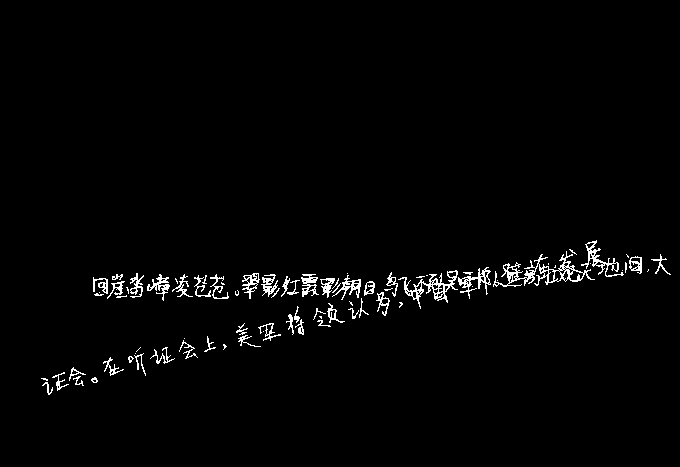 回崖沓嶂凌苍苍。翠影红霞影朝日,鸟飞不到吴 登高壮观天地间,大
证会。在听证会上,美军将领认为,中国军队 在发展